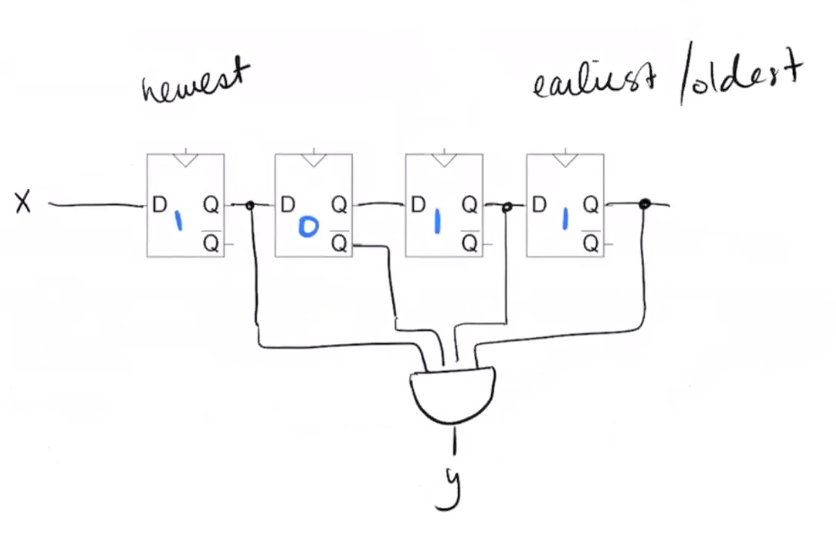 newest earliest/oldest
X D 1 Q D 0 Q D 1 Q D 1 Q
Q̅ Q̅ Q̅ Q̅
y